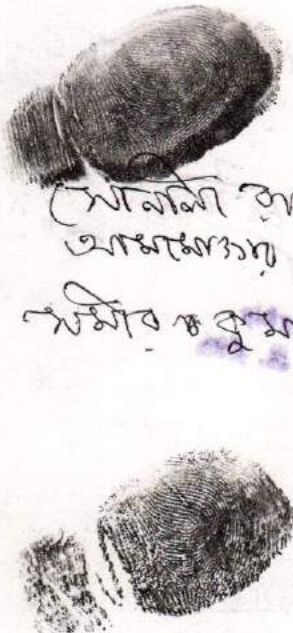 সোনালী
আমমোক্তার
সমীর কুমা